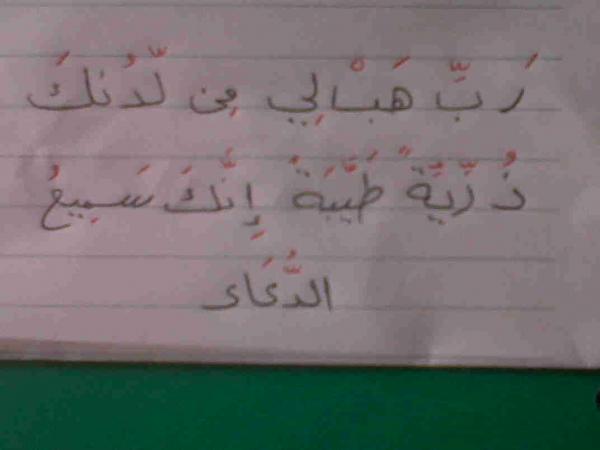 رَبِّ هَبْالِي مِن لَّدُنكَ
ذُرِّيَّةً طَيِّبَةً إِنَّكَ سَمِيعُ
الدُّعَاء